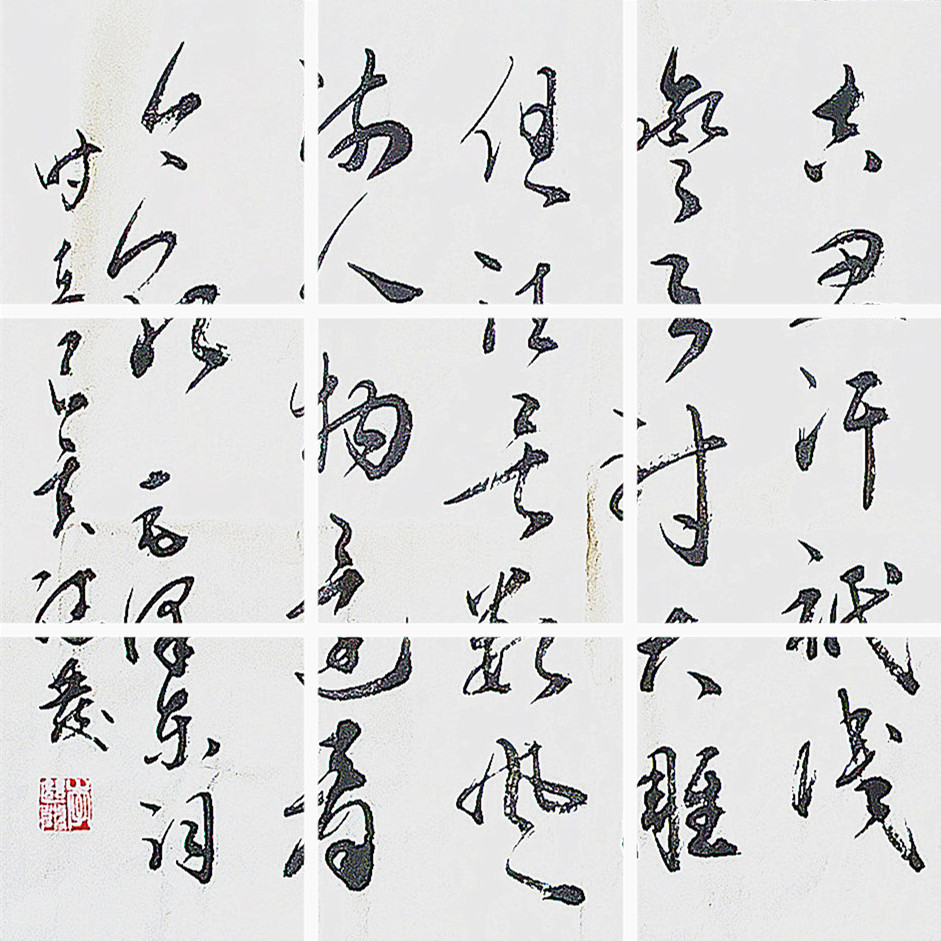 吉思汗祇識
彎弓射大雕
俱往矣數風
流人物還看
今朝 毛澤東詞
时在丁